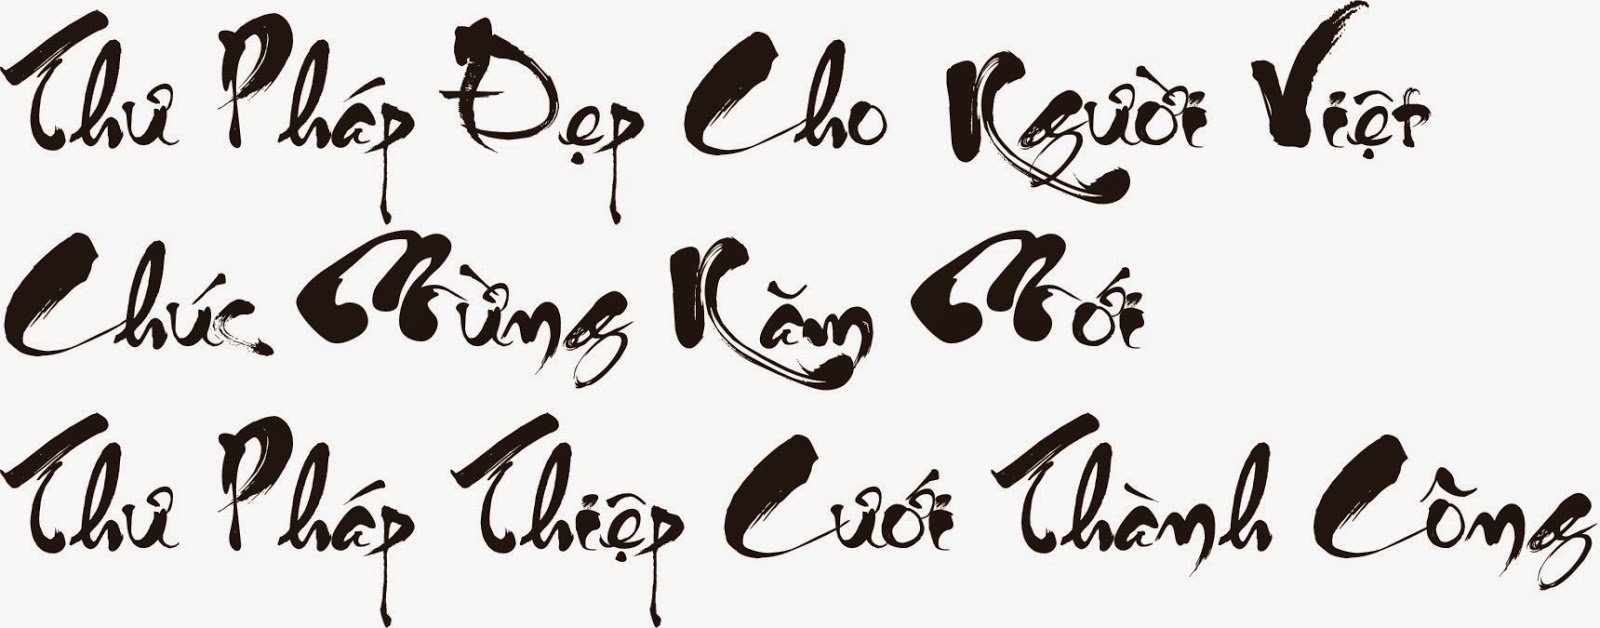 Thư Pháp Đẹp Cho Người Việt
Chúc Mừng Năm Mới
Thư Pháp Thiệp Cưới Thành Công